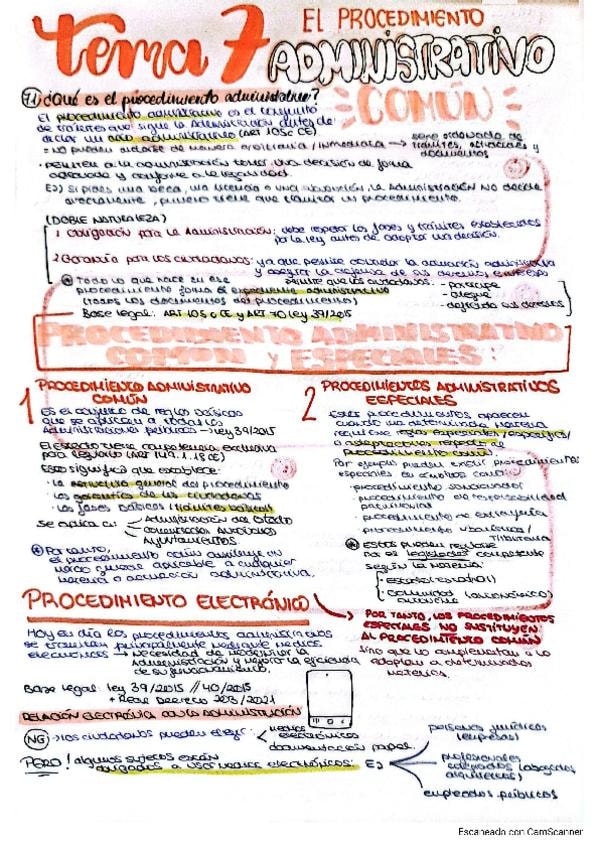 tema 7 EL PROCEDIMIENTO
ADMINISTRATIVO
COMÚN
7.1 ¿Qué es el procedimiento administrativo?
El procedimiento administrativo es el conjunto
de trámites que sigue la Administración antes de
dictar un acto administrativo (ART 105c CE)
= no pueden actuarse de manera arbitraria / inmediata → serie ordenada de
trámites, actuaciones y
documentos
· Permiten a la administración tomar una decisión de forma
adecuada y conforme a la legalidad.
Ej) Si pides una beca, una licencia o una subvención, la Administración no decide
directamente, primero tiene que tramitar un procedimiento.
(DOBLE NATURALEZA)
1 Obligación para la Administración: debe respetar las fases y trámites establecidos
por la ley antes de adoptar una decisión.
2 Garantía para los ciudadanos: ya que permite controlar la actuación administrativa
y asegurar la defensa de sus derechos e intereses
Todo lo que nace en ese
procedimiento forma el expediente administrativo
(todos los documentos del procedimiento)
permite que los ciudadanos:
- participe
- alegue
- defienda sus derechos
Base legal: ART 105 c CE y ART 70 ley 39/2015
PROCEDIMIENTO ADMINISTRATIVO
COMÚN Y ESPECIALES:
1 PROCEDIMIENTO ADMINISTRATIVO
COMÚN
Es el conjunto de reglas básicas
que se aplican a todas las
Administraciones públicas → ley 39/2015
El estado tiene competencia exclusiva
para regularlo (ART 149.1.18 CE)
Esto significa que establece:
· La estructura general del procedimiento
· Las garantías de los ciudadanos
· Las fases básicas (trámites básicos)
Se aplica a:
Administración del Estado
Comunidades Autónomas
Ayuntamientos
Por tanto,
el procedimiento común constituye un
marco general aplicable a cualquier
materia o actuación administrativa.
2 PROCEDIMIENTOS ADMINISTRATIVOS
ESPECIALES
Estos procedimientos aparecen
cuando una determinada materia
requiere reglas especiales/específicas/
o adaptaciones respecto del
procedimiento común.
Por ejemplo pueden existir procedimientos
especiales en ámbitos como:
· procedimiento sancionador
· procedimiento de responsabilidad
patrimonial
· procedimiento de extranjería
· procedimiento urbanístico /
Tributario
Estos pueden regularse
por el legislador competente
según la materia:
Estado (estatal)
Comunidad
autónoma (autonómico)
PROCEDIMIENTO ELECTRÓNICO
POR TANTO, LOS PROCEDIMIENTOS
ESPECIALES NO SUSTITUYEN
AL PROCEDIMIENTO COMÚN
sino que lo complementan o lo
adaptan a determinadas
materias.
Hoy en día los procedimientos administrativos
se tramitan principalmente mediante medios
electrónicos → Necesidad de modernizar la
Administración y mejorar la eficiencia
de su funcionamiento.
Base legal: ley 39/2015 // 40/2015
+ Real Decreto 203/2021
RELACIÓN ELECTRÓNICA CON LA ADMINISTRACIÓN
NG → los ciudadanos pueden elegir:
medios
electrónicos
documentación papel.
PERO! algunos sujetos están
obligados a usar medios electrónicos: Ej
personas jurídicas
(empresas)
profesionales
colegiados (abogados,
arquitectos)
empleados públicos
Escaneado con CamScanner